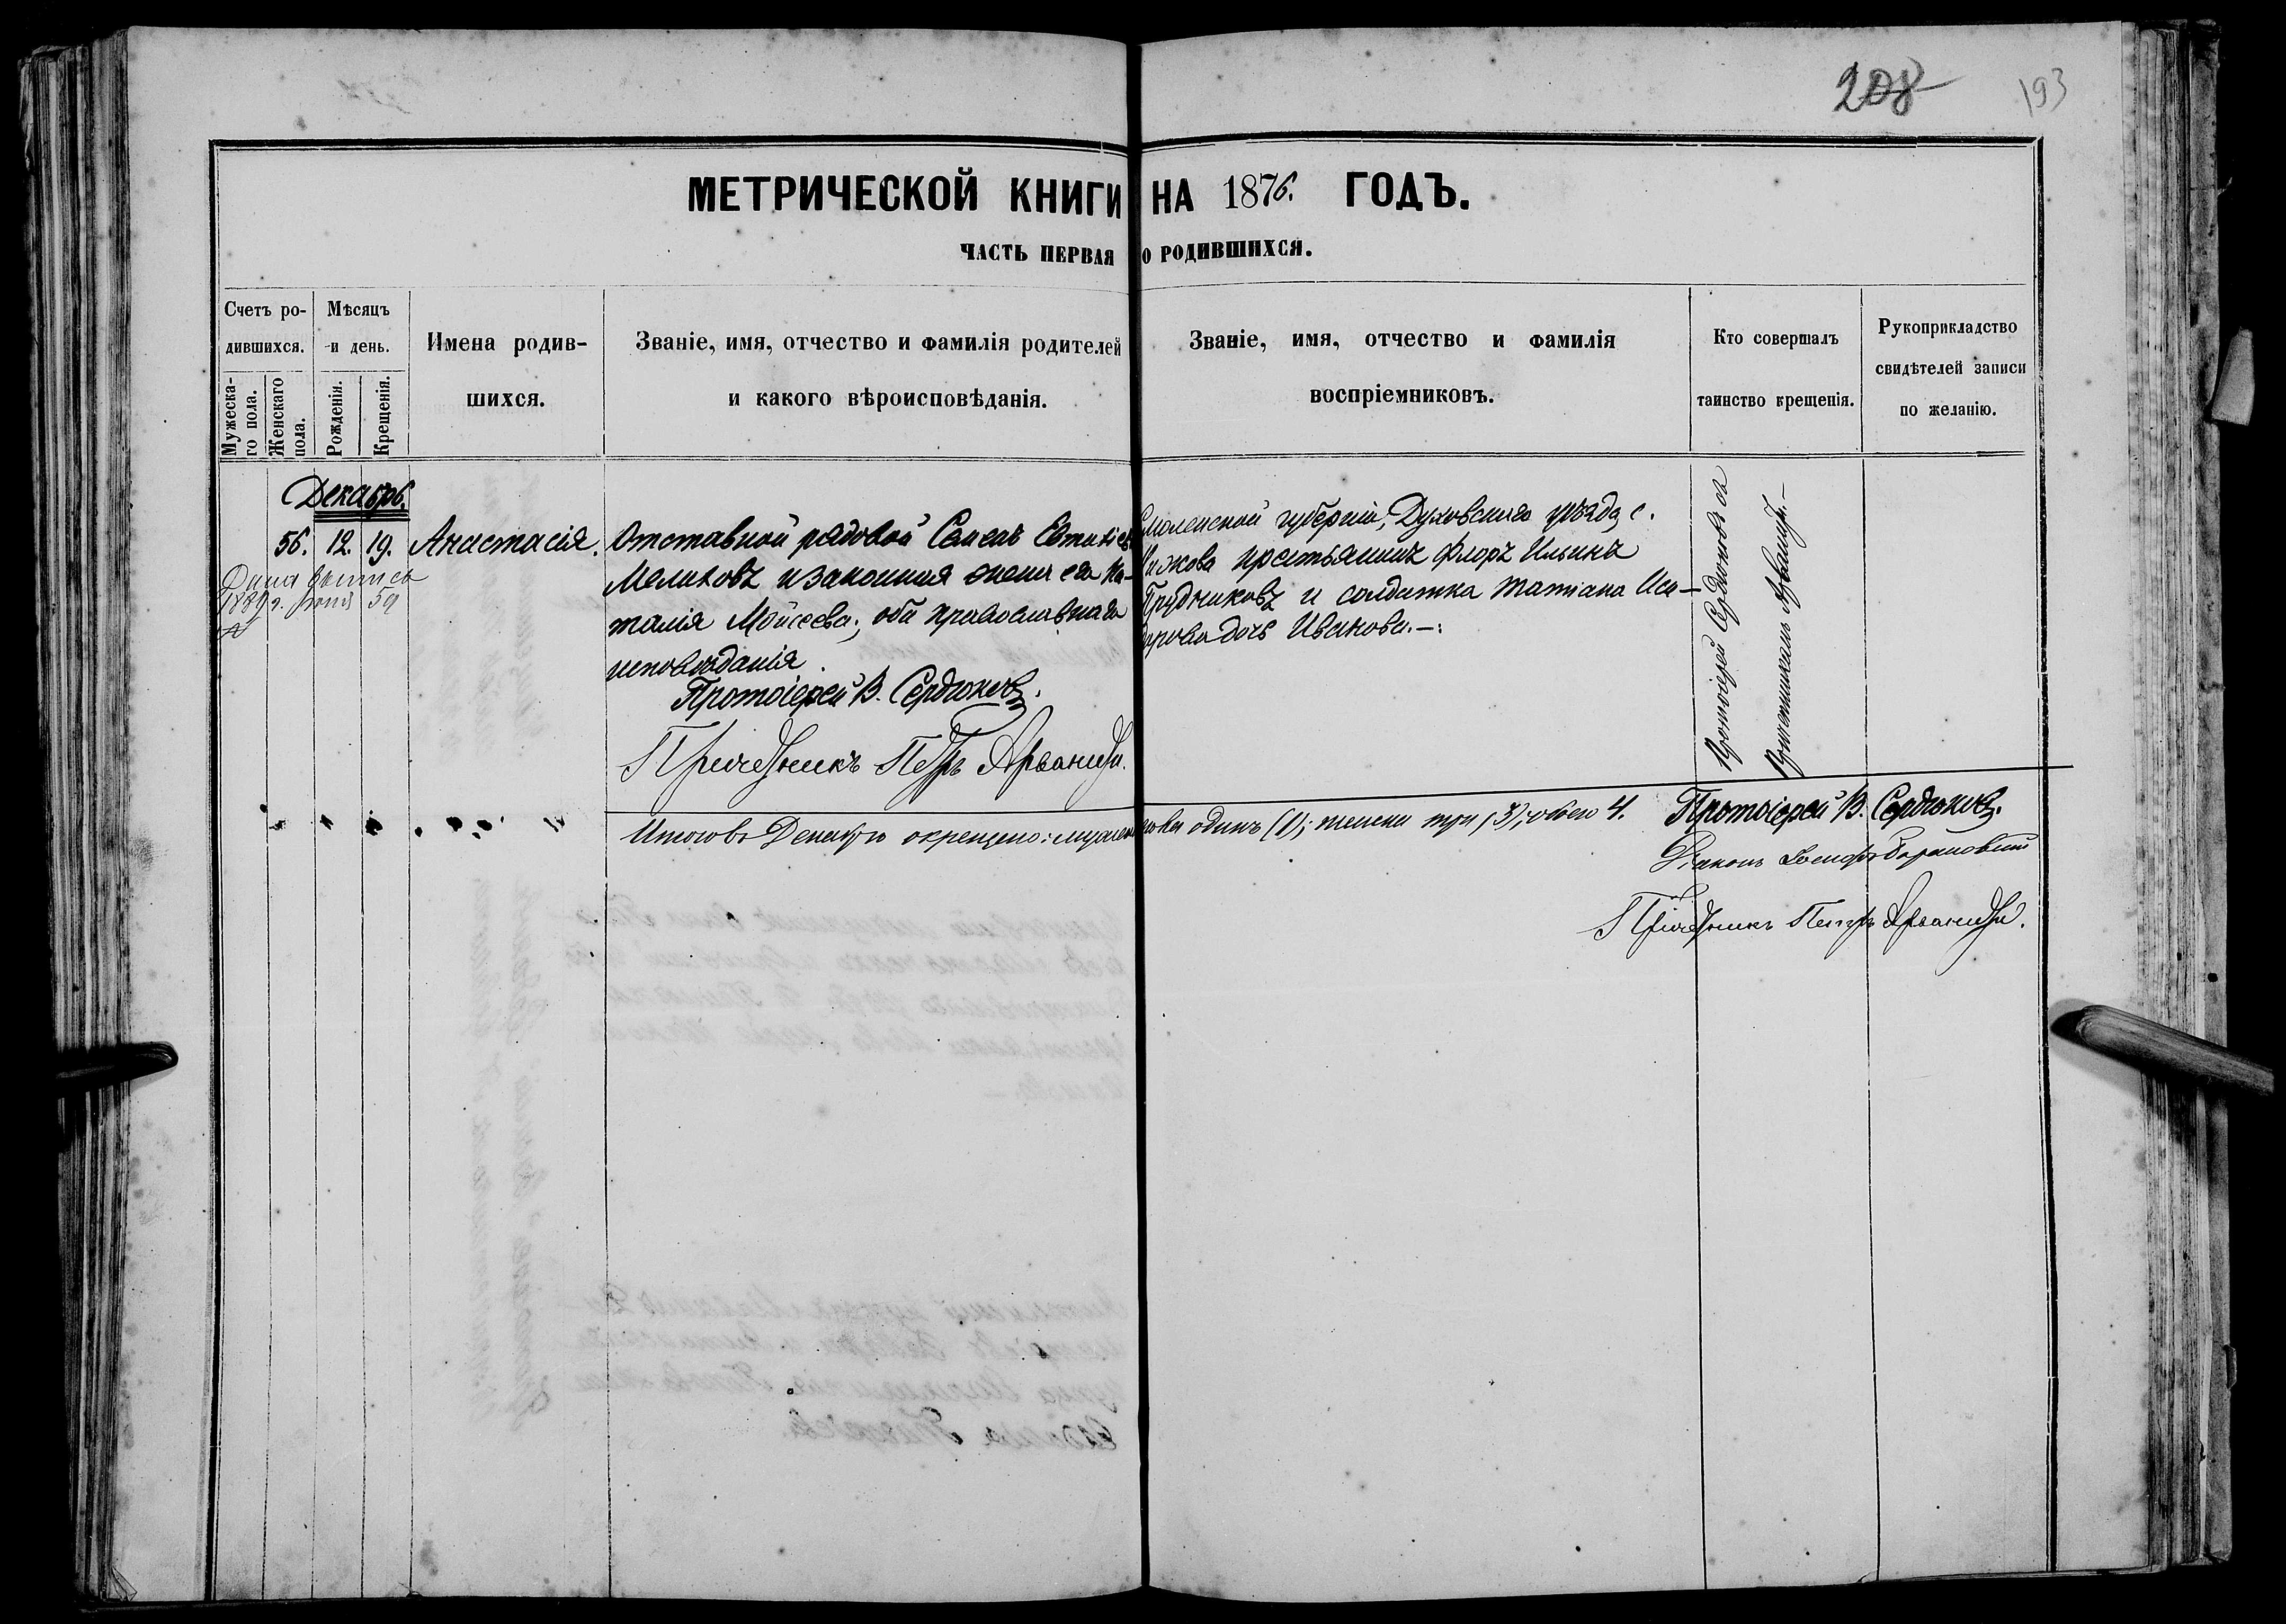 208 193
МЕТРИЧЕСКОЙ КНИГИ НА 1876. ГОДЪ.
ЧАСТЬ ПЕРВАЯ О РОДИВШИХСЯ.
Счетъ ро-
дившихся.
Мужеска-
го пола.
Женскаго
пола.
Мѣсяцъ
и день.
Рожденія.
Крещенія.
Имена родив-
шихся.
Званіе, имя, отчество и фамилія родителей
и какого вѣроисповѣданія.
Званіе, имя, отчество и фамилія
воспріемниковъ.
Кто совершалъ
таинство крещенія.
Рукоприкладство
свидѣтелей записи
по желанію.
Декабрь.
56. 12. 19. Анастасія.
1889 г. 59
Отставной рядовой Семенъ Евтихіев
Мелиховъ и законная жена его На-
талія Моисеева; оба православнаго
исповѣданія.
Протоіерей В. Сердюковъ.
Причетникъ Петръ Арваниди.
Смоленской губерніи, Духовскаго уѣзда, с.
крестьянинъ Флоръ Ильинъ
Прудниковъ и солдатка Татіана Иса-
дочь Иванова.—
Протоіерей Сердюковъ съ
Причетникомъ Арваниди.—
Итого въ Декабрѣ окрещено: мужеска пола одинъ (1); женска три (3), обоего 4.
Протоіерей В. Сердюковъ.
Діаконъ Іосифъ Барановскій
Причетникъ Петръ Арваниди.